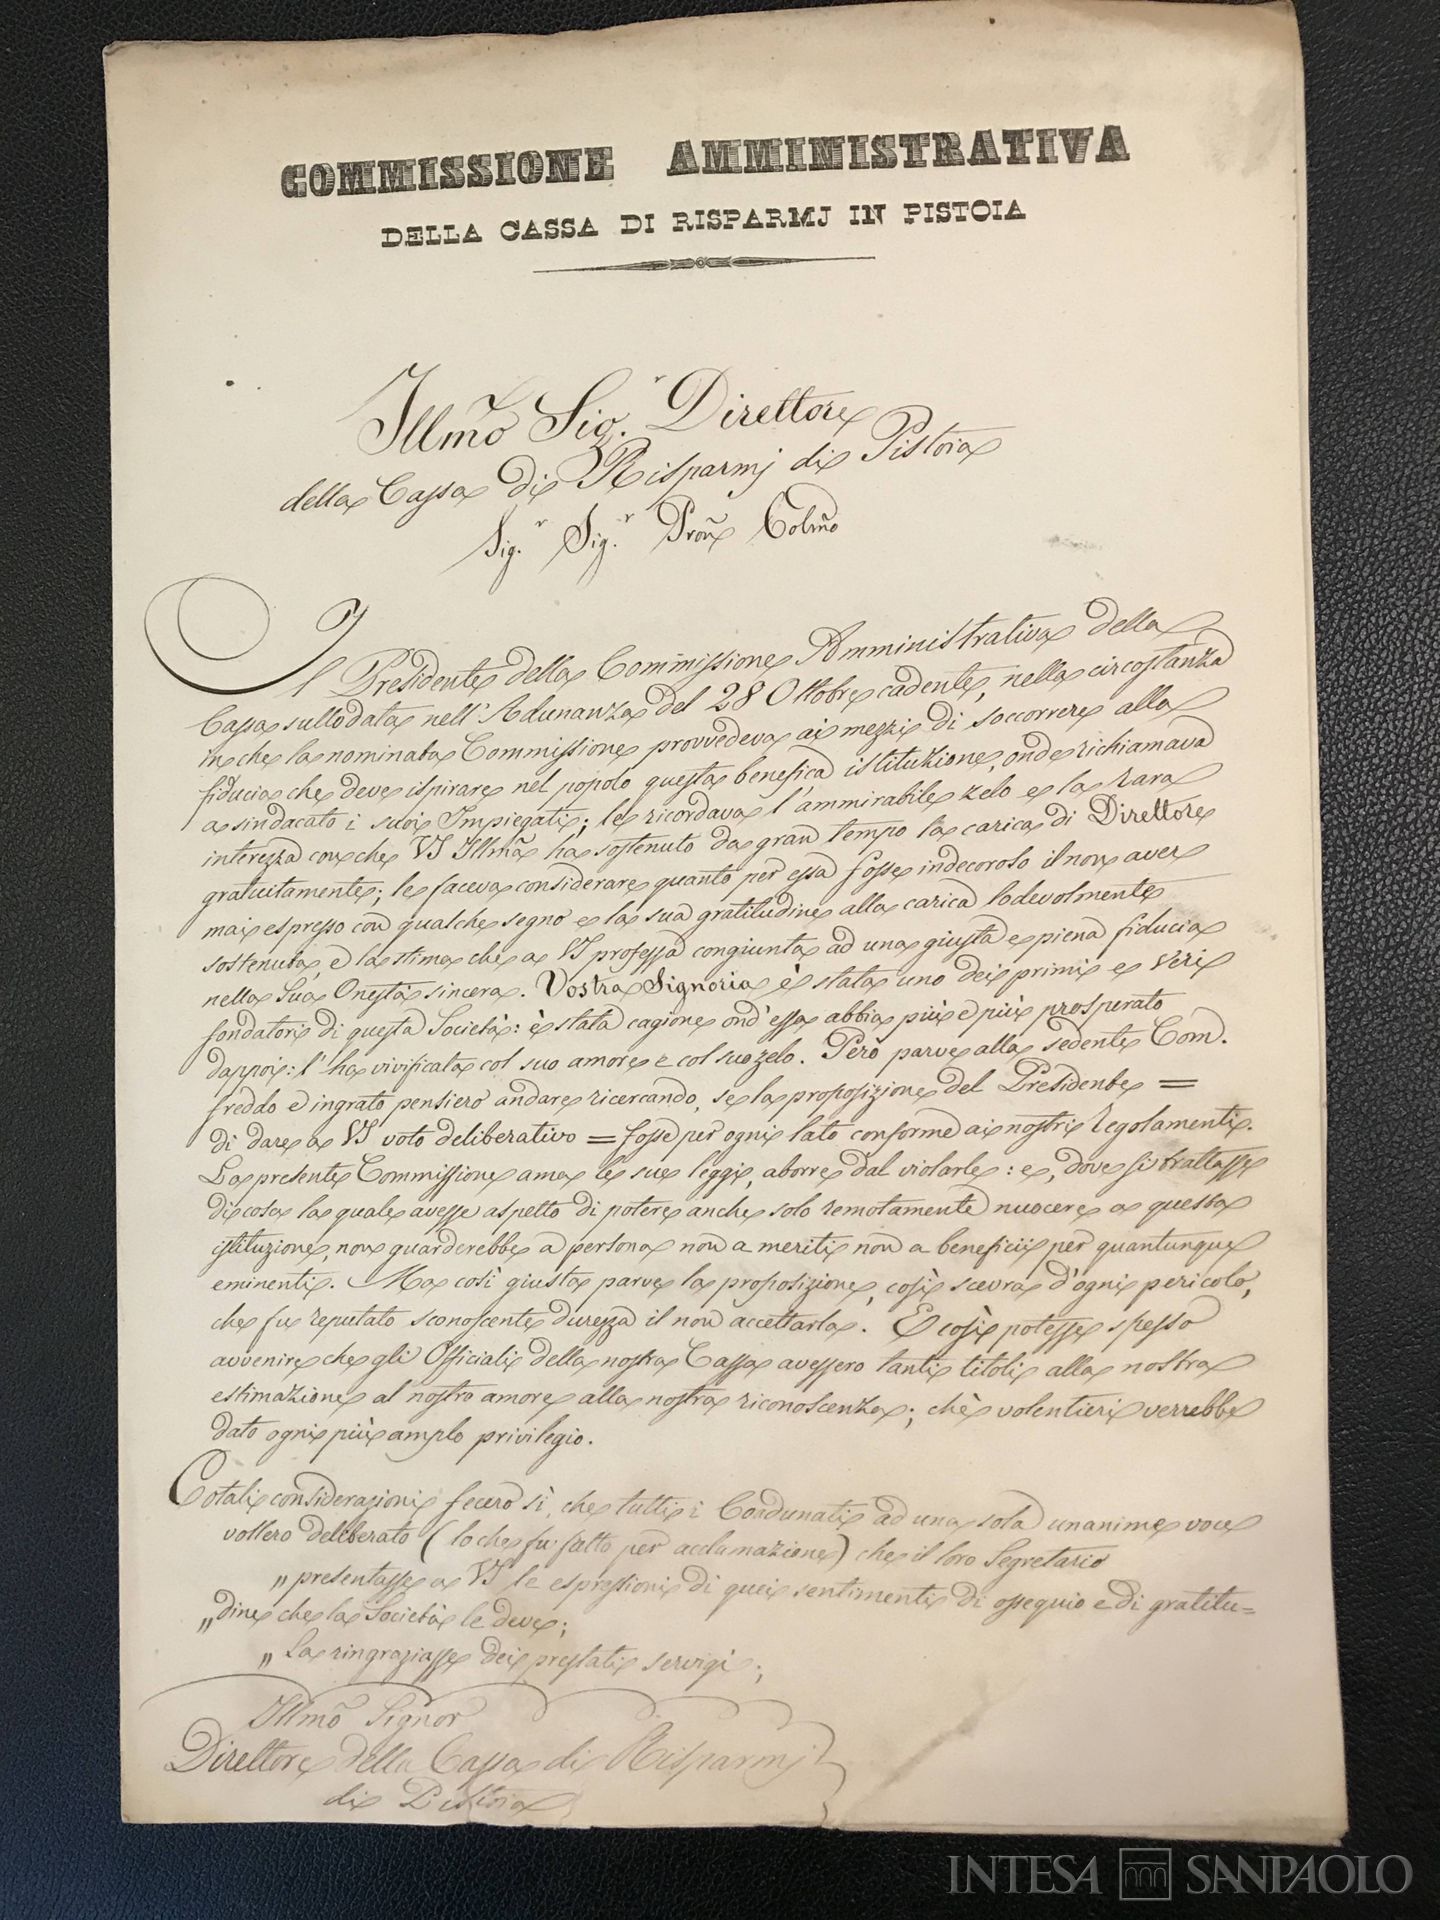 COMMISSIONE AMMINISTRATIVA
DELLA CASSA DI RISPARMJ IN PISTOIA
Illmo Sig.r Direttore
della Cassa di Risparmj di Pistoia
Sig.r Sig.r Pron Colmo
Il Presidente della Commissione Amministrativa della
Cassa sullodata nell'Adunanza del 28 Ottobre cadente, nella circostanza
in che la nominata Commissione provvedeva ai mezzi di soccorrere alla
fiducia che deve ispirare nel popolo questa benefica istituzione, onde richiamava
a sindacato i suoi Impiegati; le ricordava l'ammirabile zelo e la rara
interezza con che VS Illma ha sostenuto da gran tempo la carica di Direttore
gratuitamente; le faceva considerare quanto per essa fosse indecoroso il non aver
mai espresso con qualche segno e la sua gratitudine alla carica lodevolmente
sostenuta, e la stima che a VS professa congiunta ad una giusta e piena fiducia
nella Sua Onestà sincera. Vostra Signoria è stata uno dei primi e veri
fondatori di questa Società: è stata cagione ond'essa abbia più e più prosperato
dappoi: l'ha vivificata col suo amore e col suo zelo. Però parve alla sedente Com.
freddo e ingrato pensiero andare ricercando, se la proposizione del Presidente =
di dare a VS voto deliberativo = fosse per ogni lato conforme ai nostri Regolamenti.
La presente Commissione ama le sue leggi, aborre dal violarle: e, dove si trattasse
di cosa la quale avesse aspetto di potere anche solo remotamente nuocere a questa
istituzione, non guarderebbe a persona non a meriti non a beneficii per quantunque
eminenti. Ma così giusta parve la proposizione, così scevra d'ogni pericolo,
che fu reputato sconoscente durezza il non accettarla. E così potesse spesso
avvenire che gli Officiali della nostra Cassa avessero tanti titoli alla nostra
estimazione al nostro amore alla nostra riconoscenza; chè volentieri verrebbe
dato ogni più amplo privilegio.
Cotali considerazioni fecero sì, che tutti i Coadunati ad una sola unanime voce
vollero deliberato (lo che fu fatto per acclamazione) che il loro Segretario
„ presentasse a VS le espressioni di quei sentimenti di ossequio e di gratitu=
„ dine che la Società le deve;
„ La ringraziasse dei prestati servigi;
Illmo Signor
Direttore della Cassa di Risparmj
di Pistoia
INTESA SANPAOLO